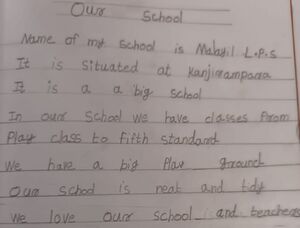 Our School
Name of my School is Malayil L.P.S
It is situated at Kanjirampara
It is a a big School
In our School we have classes from
Play class to fifth standard
We have a big Play ground
Our School is neat and tidy
We love our School and teachers